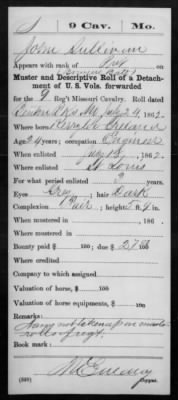 9 Cav. Mo.
John Sullivan
Appears with rank of Pvt
Muster and Descriptive Roll of a Detachment of U. S. Vols. forwarded
for the 9 Reg't Missouri Cavalry. Roll dated
July 24, 1862.
Where born Ireland
Age 24 years; occupation Engineer
When enlisted 1862.
Where enlisted St. Louis
For what period enlisted 3 years.
Eyes Grey; hair Dark
Complexion Fair; height 5 ft. 4 in.
When mustered in 186 .
Where mustered in
Bounty paid $ 100; due $
Where credited
Company to which assigned
Valuation of horse, $ 100
Valuation of horse equipments, $ 100
Remarks:
Name not taken up on muster
roll of regt.
Book mark:
Copyist.